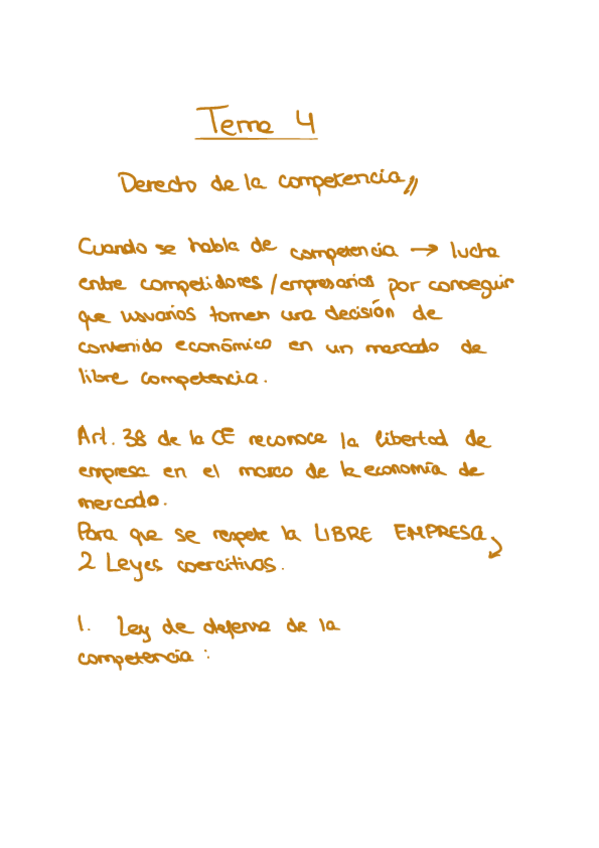 Tema 4
Derecho de la competencia //
Cuando se habla de competencia → lucha
entre competidores / empresarios por conseguir
que usuarios tomen una decisión de
contenido económico en un mercado de
libre competencia.
Art. 38 de la CE reconoce la libertad de
empresa en el marco de la economía de
mercado.
Para que se respete la LIBRE EMPRESA
2 Leyes coercitivas.
1. Ley de defensa de la
competencia :